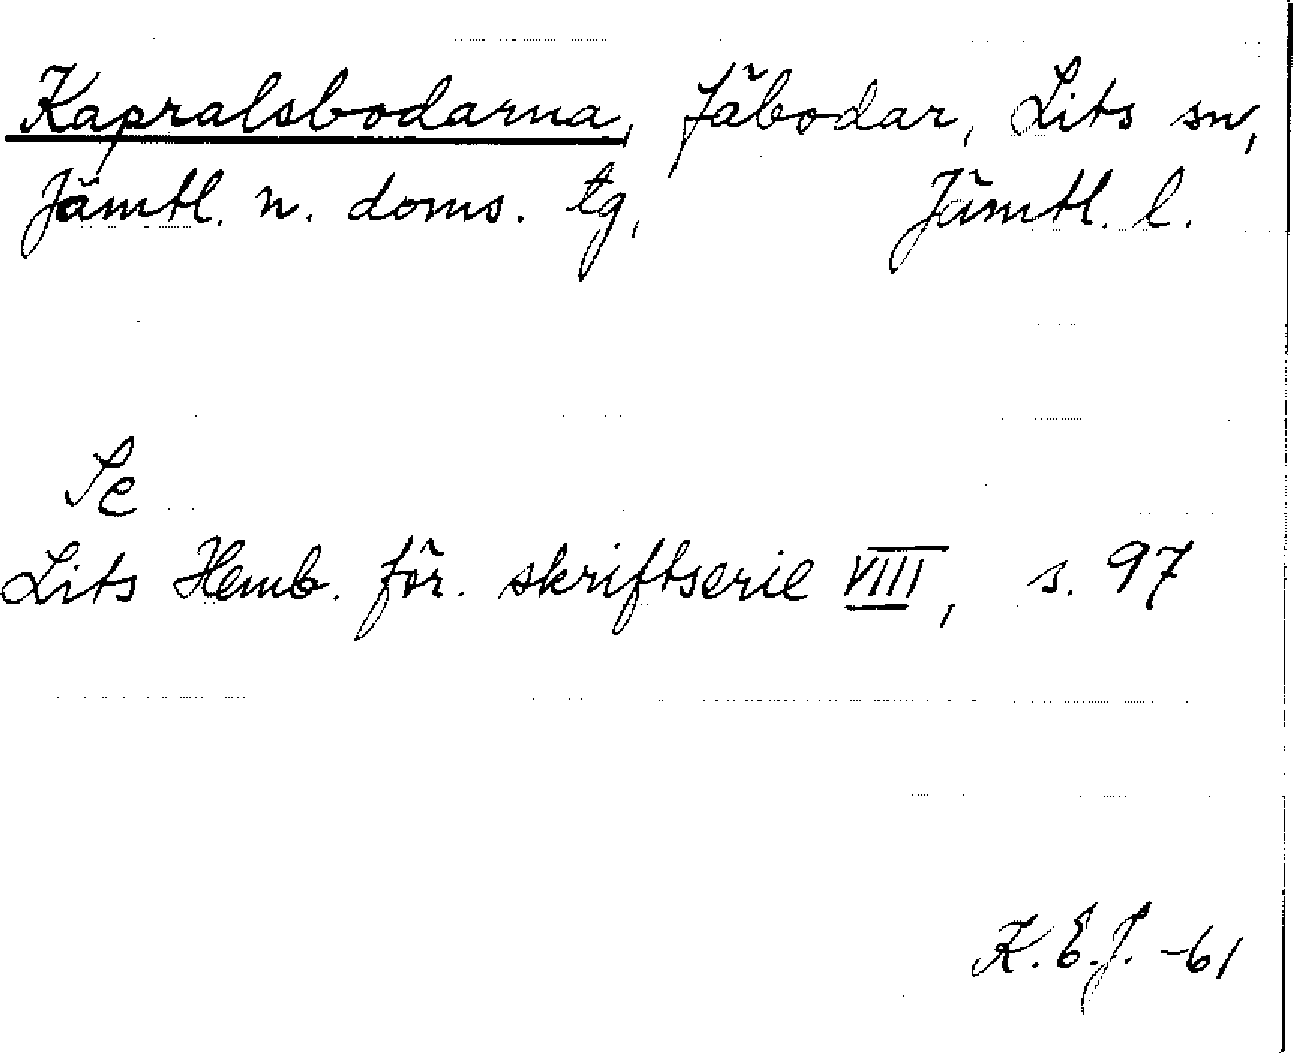 Kapralsbodarna, fäbodar, Lits sn,
Jämtl. n. doms. tg, Jämtl. l.
Se
Lits Hemb. för. skriftserie VIII, s. 97
K.E.J. -61